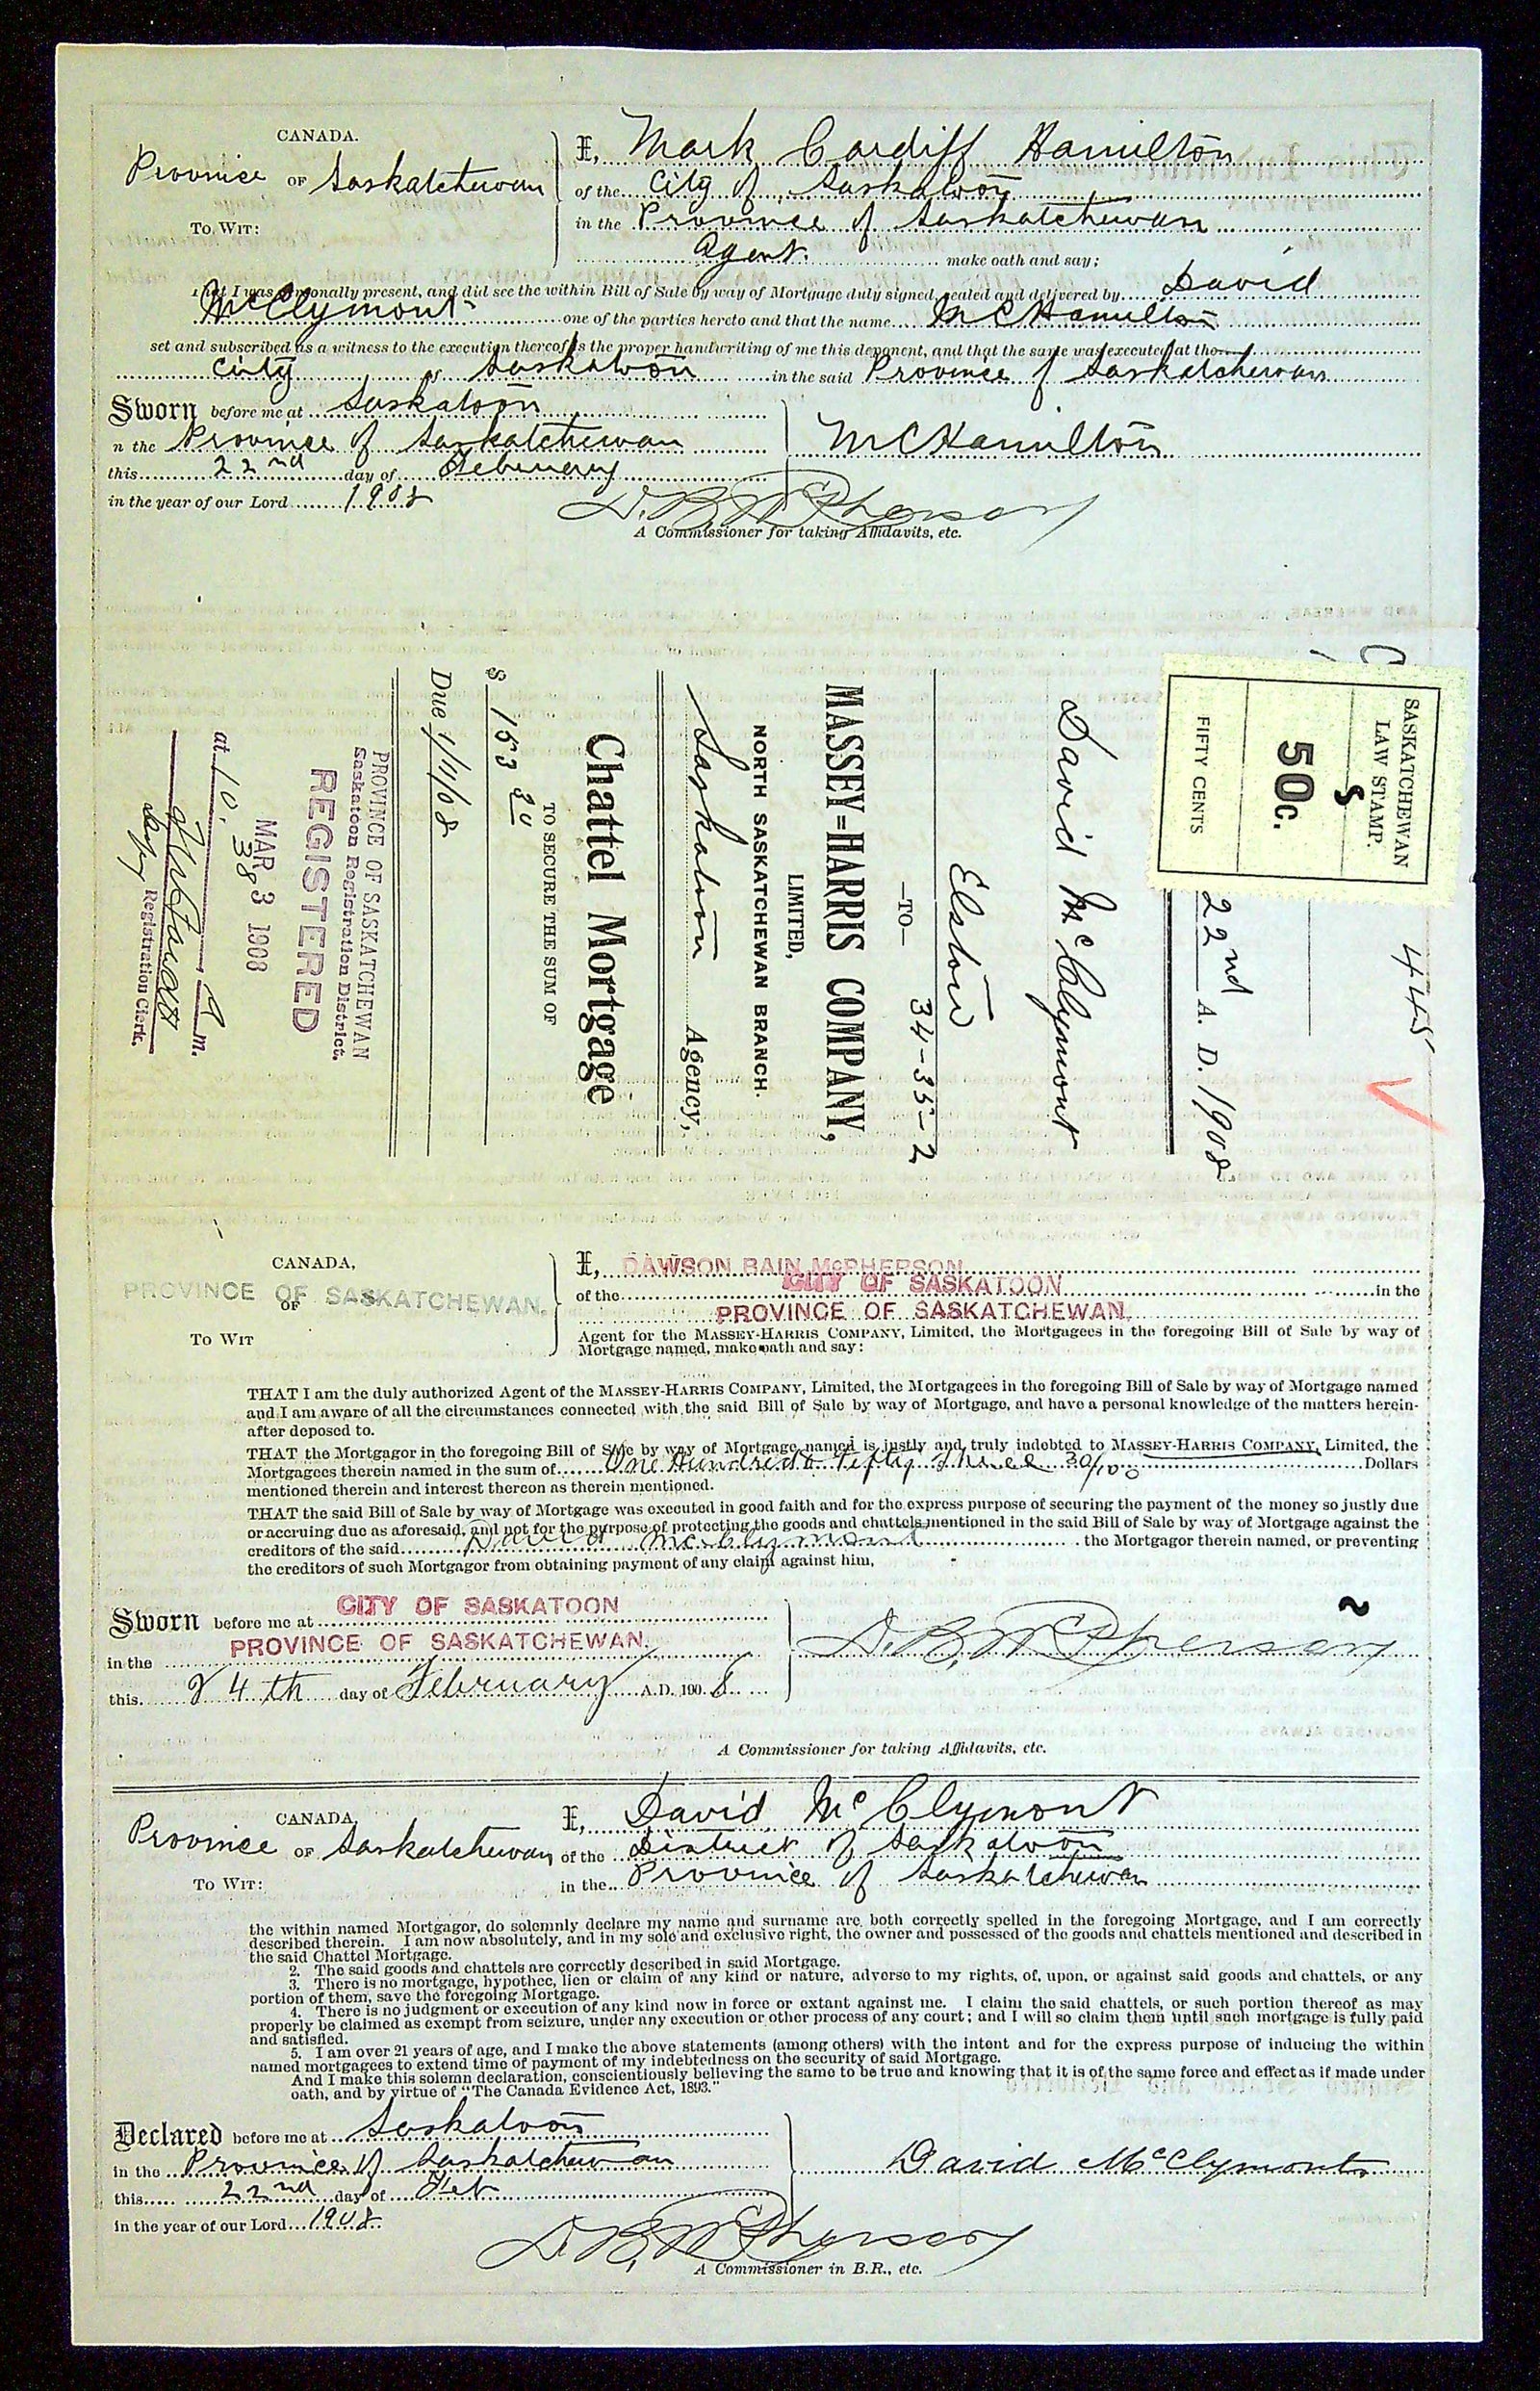 CANADA.
Province OF Saskatchewan
TO WIT:
I, Mark Cardiff Hamilton
of the City of Saskatoon
in the Province of Saskatchewan
Agent. make oath and say;
That I was personally present, and did see the within Bill of Sale by way of Mortgage duly signed, sealed and delivered by David
McClymont one of the parties hereto and that the name MCHamilton
set and subscribed as a witness to the execution thereof is the proper handwriting of me this deponent, and that the same was executed at the
City of Saskatoon in the said Province of Saskatchewan
Sworn before me at Saskatoon
n the Province of Saskatchewan
this 22nd day of February
in the year of our Lord 1908
MCHamilton
D. B. McPherson
A Commissioner for taking Affidavits, etc.
SASKATCHEWAN
LAW STAMP.
$
50c.
FIFTY CENTS
445
22nd A. D. 1908
David McClymont
Elstow
34-35-2
—TO—
MASSEY=HARRIS COMPANY,
LIMITED,
NORTH SASKATCHEWAN BRANCH.
Saskatoon Agency,
Chattel Mortgage
TO SECURE THE SUM OF
$ 153 30
Due 1/11/08
PROVINCE OF SASKATCHEWAN
Saskatoon Registration District.
REGISTERED
MAR 3 1908
at 10.38 A m.
Registration Clerk.
CANADA,
PROVINCE OF SASKATCHEWAN.
OF
TO WIT
I, DAWSON BAIN McPHERSON
of the CITY OF SASKATOON in the
PROVINCE OF SASKATCHEWAN.
Agent for the MASSEY-HARRIS COMPANY, Limited, the Mortgagees in the foregoing Bill of Sale by way of
Mortgage named, make oath and say:
THAT I am the duly authorized Agent of the MASSEY-HARRIS COMPANY, Limited, the Mortgagees in the foregoing Bill of Sale by way of Mortgage named
and I am aware of all the circumstances connected with the said Bill of Sale by way of Mortgage, and have a personal knowledge of the matters herein-
after deposed to.
THAT the Mortgagor in the foregoing Bill of Sale by way of Mortgage named is justly and truly indebted to MASSEY-HARRIS COMPANY, Limited, the
Mortgagees therein named in the sum of One Hundred & fifty three 30/100 Dollars
mentioned therein and interest thereon as therein mentioned.
THAT the said Bill of Sale by way of Mortgage was executed in good faith and for the express purpose of securing the payment of the money so justly due
or accruing due as aforesaid, and not for the purpose of protecting the goods and chattels mentioned in the said Bill of Sale by way of Mortgage against the
creditors of the said David McClymont the Mortgagor therein named, or preventing
the creditors of such Mortgagor from obtaining payment of any claim against him,
Sworn before me at CITY OF SASKATOON
in the PROVINCE OF SASKATCHEWAN.
this 24th day of February A.D. 1908
D. B. McPherson
A Commissioner for taking Affidavits, etc.
CANADA
Province OF Saskatchewan
TO WIT:
I, David McClymont
of the District of Saskatoon
in the Province of Saskatchewan
the within named Mortgagor, do solemnly declare my name and surname are both correctly spelled in the foregoing Mortgage, and I am correctly
described therein. I am now absolutely, and in my sole and exclusive right, the owner and possessed of the goods and chattels mentioned and described in
the said Chattel Mortgage.
2. The said goods and chattels are correctly described in said Mortgage.
3. There is no mortgage, hypothec, lien or claim of any kind or nature, adverse to my rights, of, upon, or against said goods and chattels, or any
portion of them, save the foregoing Mortgage.
4. There is no judgment or execution of any kind now in force or extant against me. I claim the said chattels, or such portion thereof as may
properly be claimed as exempt from seizure, under any execution or other process of any court; and I will so claim them until such mortgage is fully paid
and satisfied.
5. I am over 21 years of age, and I make the above statements (among others) with the intent and for the express purpose of inducing the within
named mortgagees to extend time of payment of my indebtedness on the security of said Mortgage.
And I make this solemn declaration, conscientiously believing the same to be true and knowing that it is of the same force and effect as if made under
oath, and by virtue of "The Canada Evidence Act, 1893."
Declared before me at Saskatoon
in the Province of Saskatchewan
this 22nd day of Feb
in the year of our Lord 1908
David McClymont
D. B. McPherson
A Commissioner in B.R., etc.